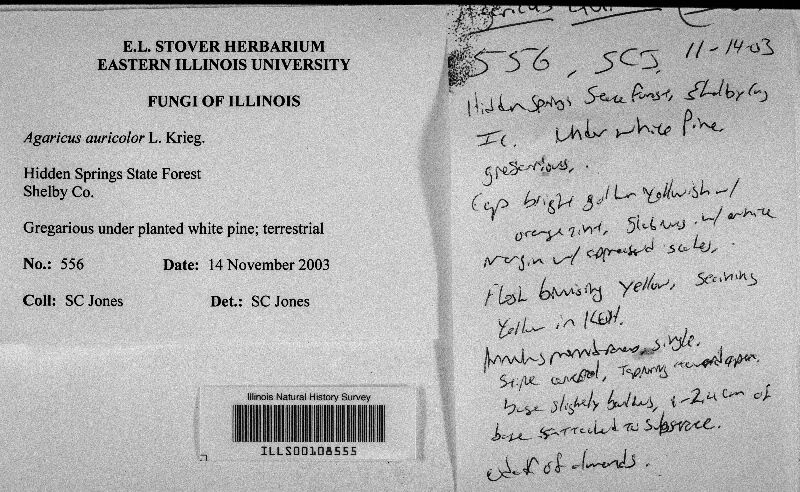 E.L. STOVER HERBARIUM
EASTERN ILLINOIS UNIVERSITY
FUNGI OF ILLINOIS
Agaricus auricolor L. Krieg.
Hidden Springs State Forest
Shelby Co.
Gregarious under planted white pine; terrestrial
No.: 556 Date: 14 November 2003
Coll: SC Jones Det.: SC Jones
Illinois Natural History Survey
ILLS00108555
Agaricus
556, SCJ. 11-14-03
Hidden Springs State Forest, Shelby Co,
IL. Under white Pine
gregarious.
Cap bright golden yellowish w/
orange zone, Glabrous w/ entire
margin w/ appressed scales,
Flesh bruising yellow, staining
Yellow in KOH.
Annulus membranous, single.
Stipe central, Tapering toward apex.
base slightly bulbous, of
base attached to substrate.
odor of almonds.